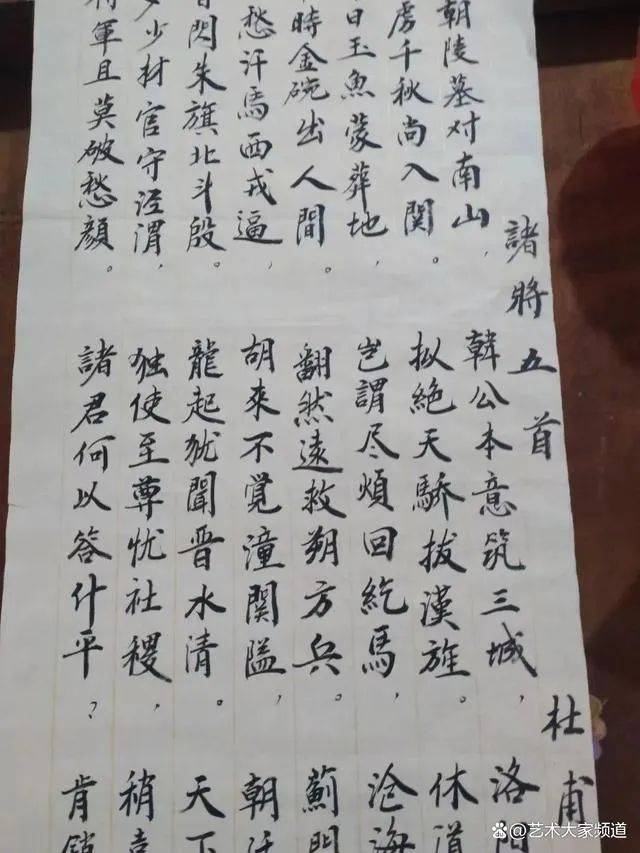 諸將五首
杜甫
朝陵墓对南山，
虏千秋尚入関。
日玉魚蒙葬地，
時金碗出人間。
愁汗馬西戎逼，
閃朱旗北斗殷。
少材官守泾渭，
将軍且莫破愁顔。
韓公本意筑三城，
拟絶天驕拔漢旌。
岂謂尽煩回紇馬，
翻然遠救朔方兵。
胡來不覚潼関隘，
龍起犹聞晋水清。
独使至尊忧社稷，
諸君何以答什平？
洛
休道
滄海
薊門
朝
天下
稍喜
肯銷
艺术大家频道